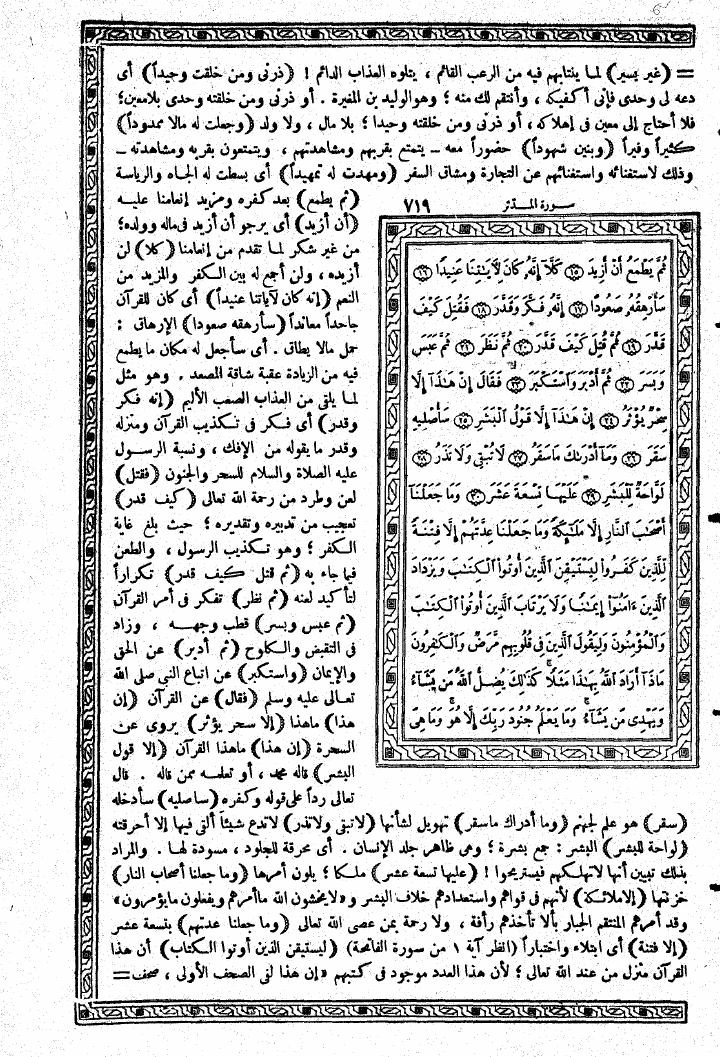 = (غير يسير) لما ينتابهم فيه من الرعب القائم ، يتلوه العذاب الدائم ! (ذرنى ومن خلقت وحيداً) أى
دعه لى وحدى فإنى أكفيكه ، وأنتقم لك منه ؛ وهو الوليد بن المغيرة . أو ذرنى ومن خلقته وحدى بلا معين ؛
فلا أحتاج إلى معين فى إهلاكه ، أو ذرنى ومن خلقته وحيدا ؛ بلا مال ، ولا ولد (وجعلت له مالا ممدوداً)
كثيراً وفيراً (وبنين شهوداً) حضوراً معه ــ يتمتع بقربهم ومشاهدتهم ، ويتمتعون بقربه ومشاهدته ــ
وذلك لاستغنائه واستغنائهم عن التجارة ومشاق السفر (ومهدت له تمهيداً) أى بسطت له الجاه والرياسة
(ثم يطمع) بعد كفره ومزيد إنعامنا عليه
(أن أزيد) أى يرجو أن أزيد فى ماله وولده ؛
من غير شكر لما تقدم من إنعامنا (كلا) لن
أزيده ، ولن أجمع له بين الكفر والمزيد من
النعم (إنه كان لآياتنا عنيداً) أى كان للقرآن
جاحداً معانداً (سأرهقه صعودا) الإرهاق :
حمل مالا يطاق . أى سأجعل له مكان ما يطمع
فيه من الزيادة عقبة شاقة المصعد . وهو مثل
لما يلقى من العذاب الصعب الأليم (إنه فكر
وقدر) أى فكر فى تكذيب القرآن ومنزله
وقدر ما يقوله من الإفك ، ونسبة الرسول
عليه الصلاة والسلام للسحر والجنون (فقتل)
لعن وطرد من رحمة الله تعالى (كيف قدر)
تعجيب من تدبيره وتقديره ؛ حيث بلغ غاية
الكفر ؛ وهو تكذيب الرسول ، والطعن
فيما جاء به (ثم قتل كيف قدر) تكراراً
لتأكيد لعنه (ثم نظر) تفكر فى أمر القرآن
(ثم عبس وبسر) قطب وجهه ، وزاد
فى التقبض والكلوح (ثم أدبر) عن الحق
والإيمان (واستكبر) عن اتباع النبى صلى الله
تعالى عليه وسلم (فقال) عن القرآن (إن
هذا) ما هذا (إلا سحر يؤثر) يروى عن
السحرة (إن هذا) ما هذا القرآن (إلا قول
البشر) قاله محمد ، أو تعلمه ممن قاله . قال
تعالى رداً على قوله وكفره (سأصليه) سأدخله
سورة المدثر
٧١٩
ثُمَّ يَطْمَعُ أَنْ أَزِيدَ ⑮ كَلَّا إِنَّهُ كَانَ لِآيَاتِنَا عَنِيدًا ⑯
سَأُرْهِقُهُ صَعُودًا ⑰ إِنَّهُ فَكَّرَ وَقَدَّرَ ⑱ فَقُتِلَ كَيْفَ
قَدَّرَ ⑲ ثُمَّ قُتِلَ كَيْفَ قَدَّرَ ⑳ ثُمَّ نَظَرَ ㉑ ثُمَّ عَبَسَ
وَبَسَرَ ㉒ ثُمَّ أَدْبَرَ وَاسْتَكْبَرَ ㉓ فَقَالَ إِنْ هَٰذَا إِلَّا
سِحْرٌ يُؤْثَرُ ㉔ إِنْ هَٰذَا إِلَّا قَوْلُ الْبَشَرِ ㉕ سَأُصْلِيهِ
سَقَرَ ㉖ وَمَا أَدْرَاكَ مَا سَقَرُ ㉗ لَا تُبْقِي وَلَا تَذَرُ ㉘
لَوَّاحَةٌ لِلْبَشَرِ ㉙ عَلَيْهَا تِسْعَةَ عَشَرَ ㉚ وَمَا جَعَلْنَا
أَصْحَابَ النَّارِ إِلَّا مَلَائِكَةً وَمَا جَعَلْنَا عِدَّتَهُمْ إِلَّا فِتْنَةً
لِلَّذِينَ كَفَرُوا لِيَسْتَيْقِنَ الَّذِينَ أُوتُوا الْكِتَابَ وَيَزْدَادَ
الَّذِينَ آمَنُوا إِيمَانًا وَلَا يَرْتَابَ الَّذِينَ أُوتُوا الْكِتَابَ
وَالْمُؤْمِنُونَ وَلِيَقُولَ الَّذِينَ فِي قُلُوبِهِمْ مَرَضٌ وَالْكَافِرُونَ
مَاذَا أَرَادَ اللَّهُ بِهَٰذَا مَثَلًا كَذَٰلِكَ يُضِلُّ اللَّهُ مَنْ يَشَاءُ
وَيَهْدِي مَنْ يَشَاءُ وَمَا يَعْلَمُ جُنُودَ رَبِّكَ إِلَّا هُوَ وَمَا هِيَ
(سقر) هو علم لجهنم (وما أدراك ما سقر) تهويل لشأنها (لا تبقى ولا تذر) لا تدع شيئاً ألقى فيها إلا أحرقته
(لواحة للبشر) البشر : جمع بشرة ؛ وهى ظاهر جلد الإنسان . أى محرقة للجلود ، مسودة لها . والمراد
بذلك تبيين أنها لا تهلكهم فيستريحوا ! (عليها تسعة عشر) ملكا ؛ يلون أمرها (وما جعلنا أصحاب النار)
خزنتها (إلا ملائكة) لأنهم فى قواهم واستعدادهم خلاف البشر و «لا يخشون الله ما أمرهم ويفعلون ما يؤمرون»
وقد أمرهم المنتقم الجبار بألا تأخذهم رأفة ، ولا رحمة بمن عصى الله تعالى (وما جعلنا عدتهم) بتسعة عشر
(إلا فتنة) أى ابتلاء واختباراً (انظر آية ١ من سورة الفاتحة) (ليستيقن الذين أوتوا الكتاب) أن هذا
القرآن منزل من عند الله تعالى ؛ لأن هذا العدد موجود فى كتبهم «إن هذا لفى الصحف الأولى ، صحف =